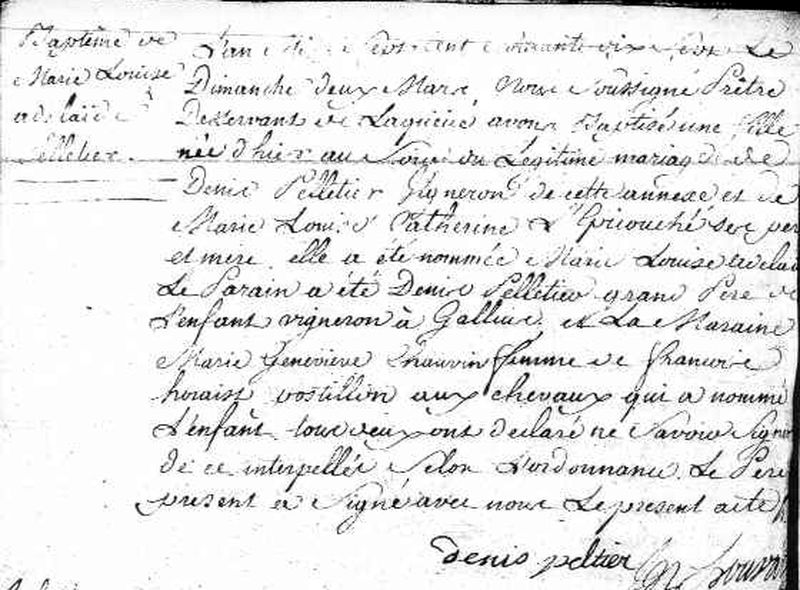 Baptême de
Marie Louise
adelaïde
Pelletier.
L'an Mil sept cent soixante dix sept Le
Dimanche deux Mars, Nous soussigné Prêtre
Desservant de Laqueüe avons Baptisé une fille
née d'hier au Soir du Légitime mariage de
Denis Pelletier Vigneron de cette annexe et de
Marie Louise Catherine L'Epicouché ses per
et mere. elle a été nommée Marie Louise adelaï
Le Parain a été Denis Pelletier grand Pere de
L'enfant vigneron à Galluis, et La Maraine
Marie Geneviève Chauvin femme de francois
horaist postillon aux chevaux qui a nommé
L'enfant, tous deux ont declaré ne savoir signer
de ce interpellés selon L'ordonnance. Le Pere
present a signé avec nous Le present acte
denis peltier